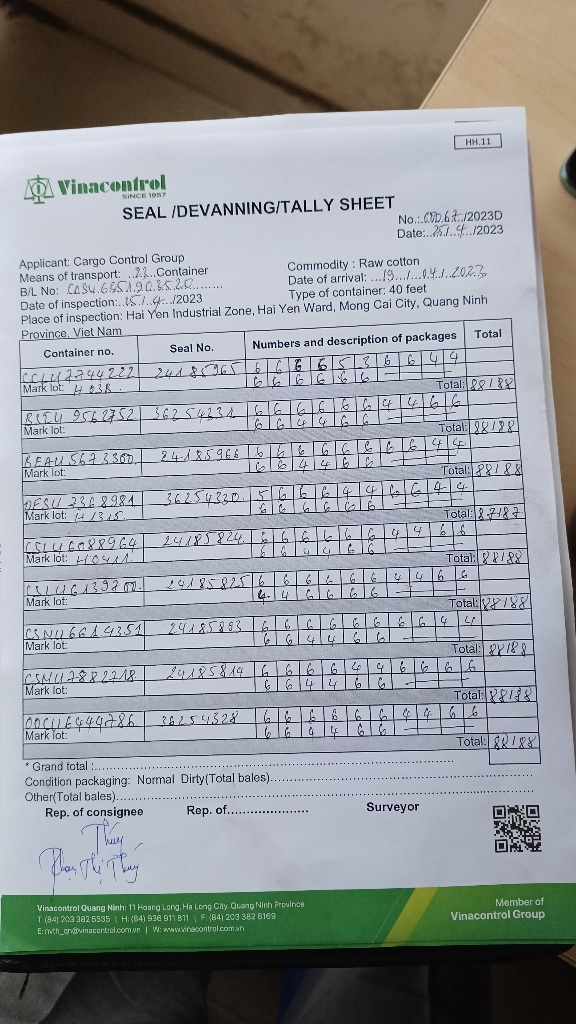 HH.11
Vinacontrol
SINCE 1957
SEAL /DEVANNING/TALLY SHEET
No.: /2023D
Date: 25/.4./2023
Applicant: Cargo Control Group
Commodity : Raw cotton
Means of transport: ..23..Container
Date of arrival: ...19.../...04/...2023
B/L No: COSU 6351908520
Type of container: 40 feet
Date of inspection: /.4./2023
Place of inspection: Hai Yen Industrial Zone, Hai Yen Ward, Mong Cai City, Quang Ninh
Province, Viet Nam
Container no. Seal No. Numbers and description of packages Total
CCLU7744222 24185965 6 6 6 6 5 3 6 6 4 4
Mark lot: H03B 6 6 6 6 6 6
Total: 88/88
9562752 36254331 6 6 6 6 6 6 4 4 6 6
Mark lot: 6 6 4 4 6 6
Total: 88/88
BEAU 5673300 24185966 6 6 6 6 6 6 6 6 4 4
Mark lot: 6 6 4 4 6 6
Total: 88/88
DFSU 2368981 36254330 5 6 6 6 4 4 6 6 4 4
Mark lot: H1315 6 6 6 6 6 6
Total: 87/87
CSLU6088964 24185824 6 6 6 6 6 6 4 4 6 6
Mark lot: H0411 6 6 4 4 6 6
Total: 88/88
CSLU6139700 24185825 6 6 6 6 6 6 4 4 6 6
Mark lot: 4 4 6 6 6 6
Total: 88/88
CSNU6614351 24185893 6 6 6 6 6 6 6 6 4 4
Mark lot: 6 6 4 4 6 6
Total: 88/88
CSNU7882718 24185814 6 6 6 6 4 4 6 6 6 6
Mark lot: 6 6 4 4 6 6
Total: 88/88
OOCU6444786 36254328 6 6 6 6 6 6 4 4 6 6
Mark lot: 6 6 4 4 6 6
Total: 88/88
* Grand total :
Condition packaging: Normal Dirty(Total bales)
Other(Total bales)
Rep. of consignee Rep. of Surveyor
Thúy
Phạm Thị Thúy
Vinacontrol Quang Ninh: 11 Hoang Long, Ha Long City, Quang Ninh Province
T: (84) 203 382 5535 | H: (84) 936 911 811 | F: (84) 203 382 6169
E: nvth_qn@vinacontrol.com.vn | W: www.vinacontrol.com.vn
Member of
Vinacontrol Group